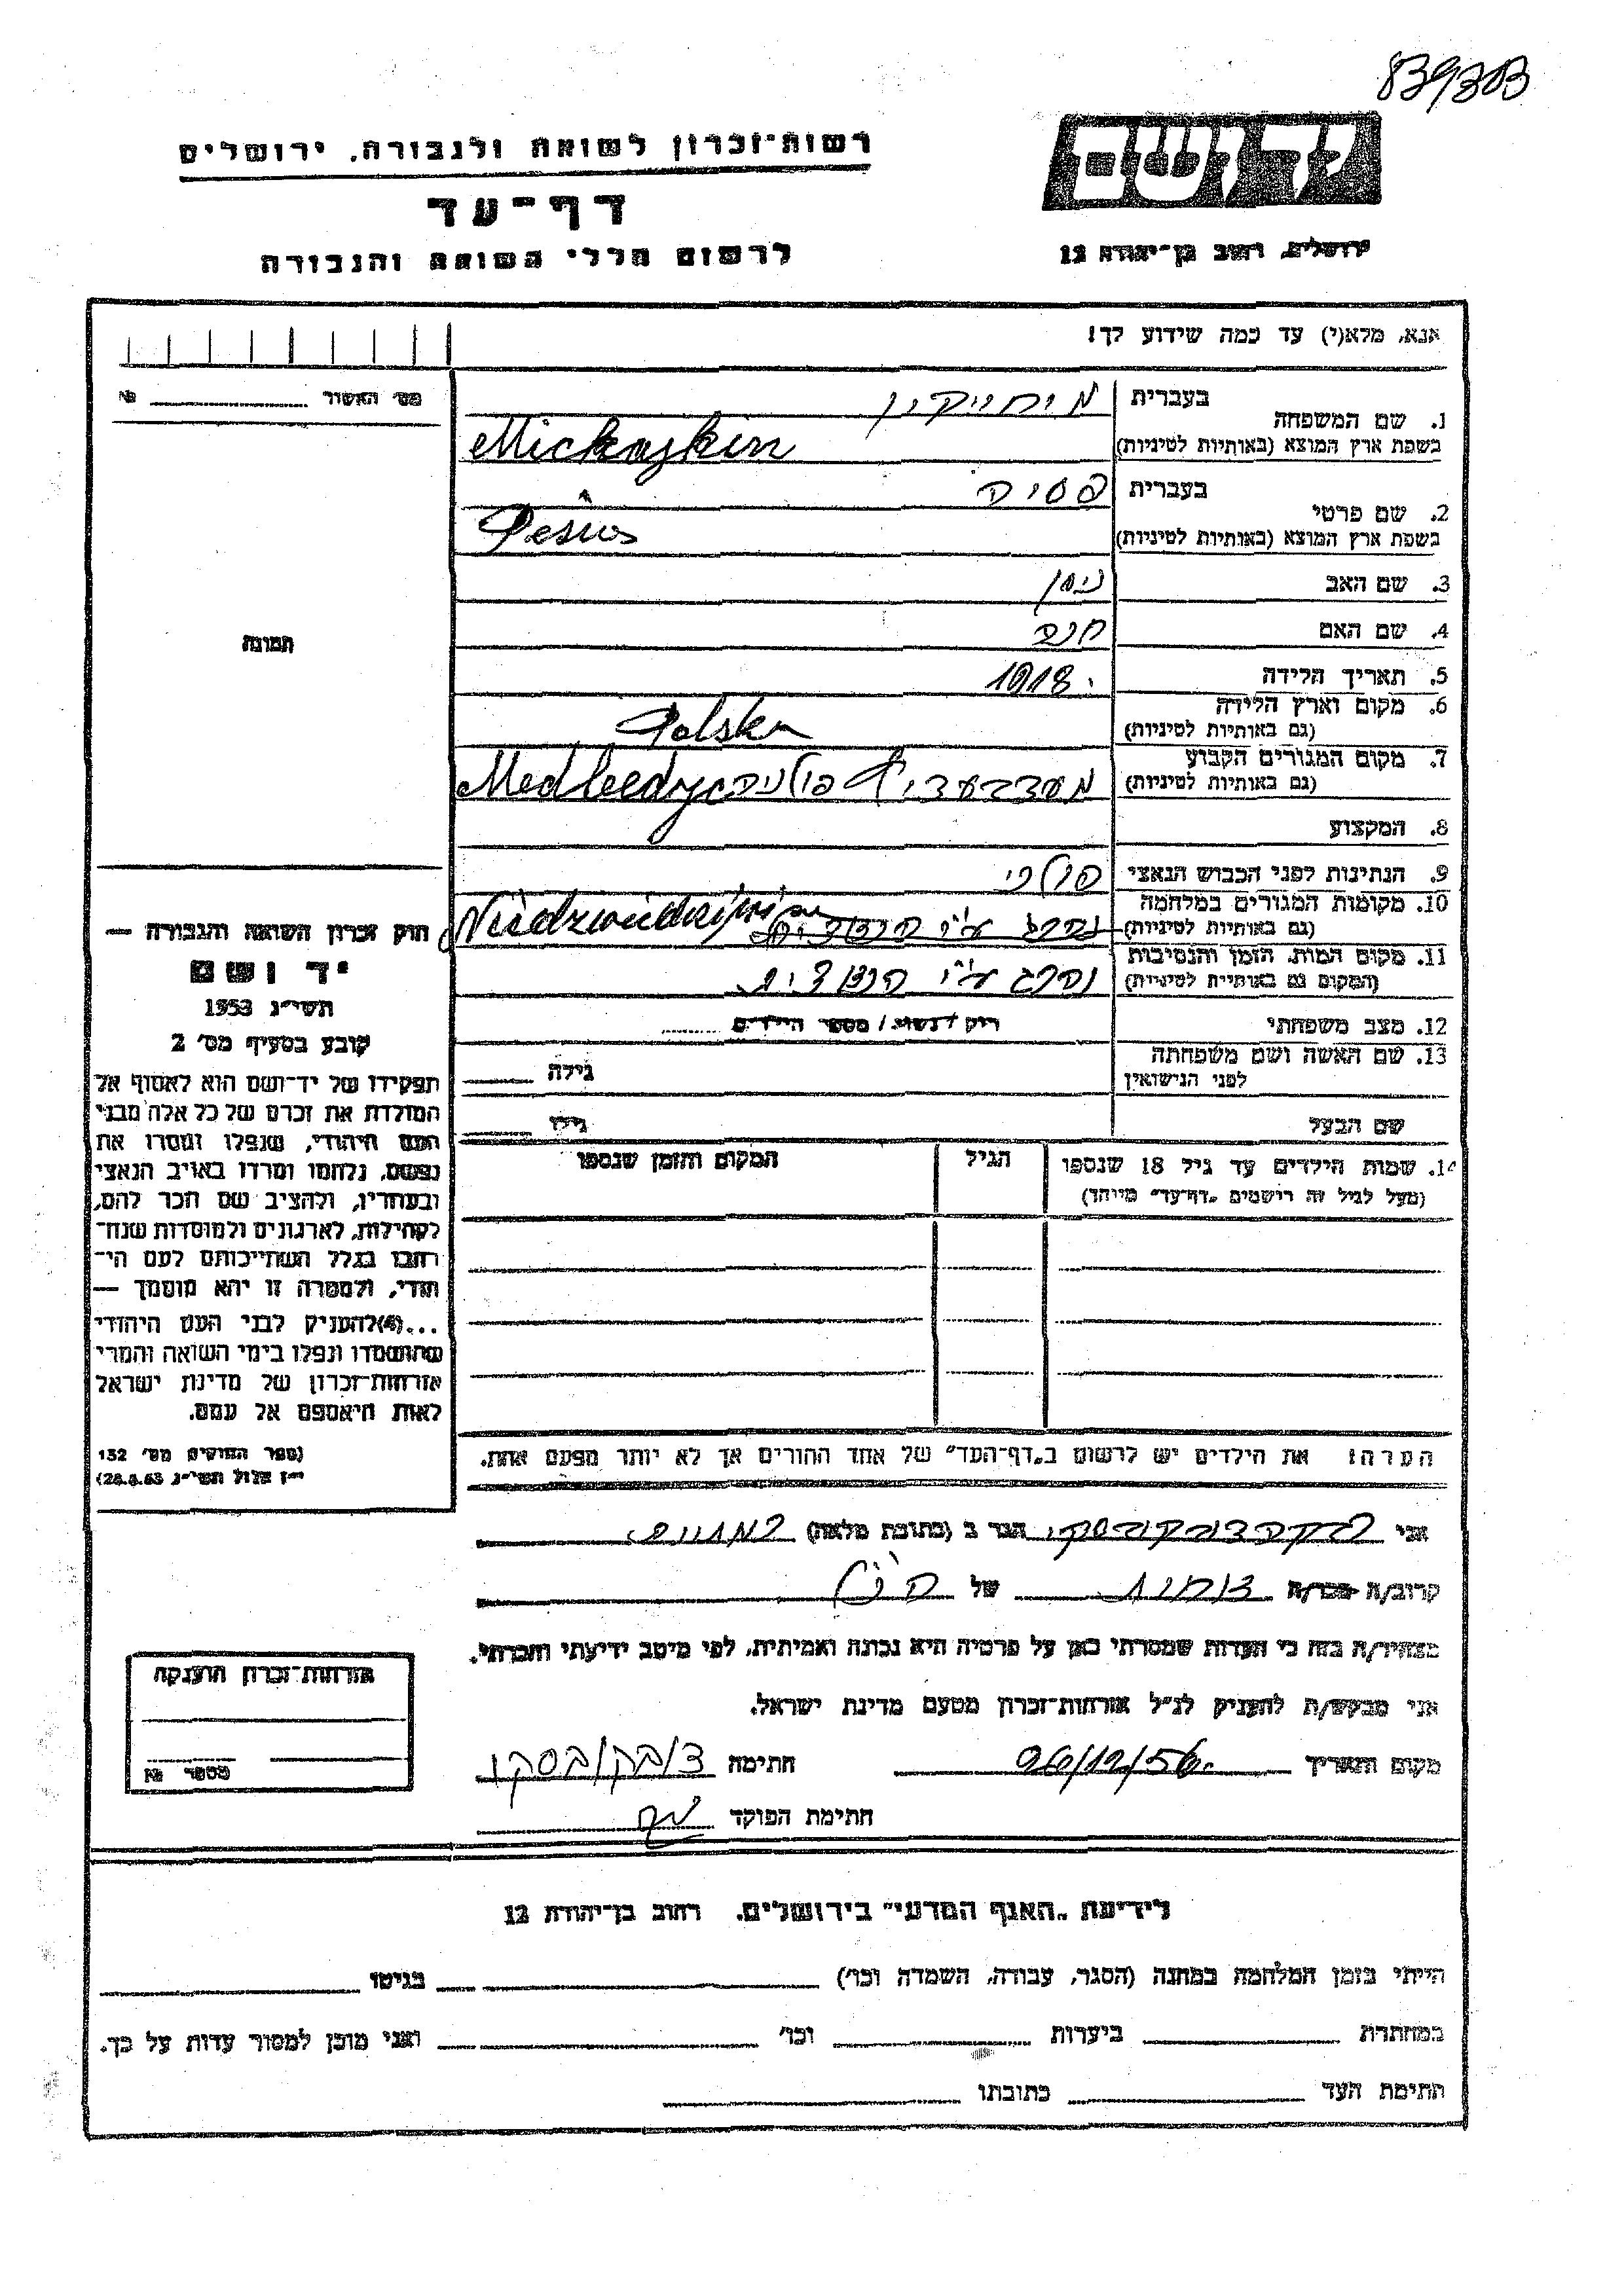 839/303
רשות־זכרון לשואה ולגבורה, ירושלים
יד ושם
דף־עד
לרשום חללי השואה והגבורה
ירושלים, רחוב בן־יהודה 12
אנא, מלא(י) עד כמה שידוע לך!
מס׳ האשור № 
1. שם המשפחה
בעברית
בשפת ארץ המוצא (באותיות לטיניות)
Mickajkin
2. שם פרטי
בעברית
בשפת ארץ המוצא (באותיות לטיניות)
3. שם האב
4. שם האם חנה
5. תאריך הלידה 1918
6. מקום וארץ הלידה
(גם באותיות לטיניות)
Polska
7. מקום המגורים הקבוע
(גם באותיות לטיניות)
8. המקצוע
9. הנתינות לפני הכבוש הנאצי פולני
10. מקומות המגורים במלחמה
(גם באותיות לטיניות)
11. מקום המות, הזמן והנסיבות
(המקום גם באותיות לטיניות)
נהרג ע״י הנצים
12. מצב משפחתי רוק / נשוי / מספר הילדים
13. שם האשה ושם משפחתה
לפני הנישואין
גילה
שם הבעל גילו
14. שמות הילדים עד גיל 18 שנספו
(מעל לגיל זה רישמים „דף־עד״ מייחד)
הגיל
המקום והזמן שנספו
הערה: את הילדים יש לרשום ב„דף־העד״ של אחד ההורים אך לא יותר מפעם אחת.
תמונה
חוק זכרון השואה והגבורה —
יד ושם
תשי״ג 1953
קובע בסעיף מס׳ 2
תפקידו של יד־ושם הוא לאסוף אל
המולדת את זכרם של כל אלה מבני
העם היהודי, שנפלו ומסרו את
נפשם, נלחמו ומרדו באויב הנאצי
ובעוזריו, ולהציב שם וזכר להם,
לקהילות, לארגונים ולמוסדות שנח־
רבו בגלל השתייכותם לעם הי־
הודי, ולמטרה זו יהא מוסמך —
...(4)להעניק לבני העם היהודי
שהושמדו ונפלו בימי השואה והמרי
אזרחות־זכרון של מדינת ישראל
לאות היאספם אל עמם.
(ספר החוקים מס׳ 132
י״ז אלול תשי״ג 28.8.53)
אני
הגר ב (כתובת מלאה)
קרוב/ה מכר/ה של
מצהיר/ה בזה כי העדות שמסרתי כאן על פרטיה היא נכונה ואמיתית, לפי מיטב ידיעתי והכרתי.
אני מבקש/ת להעניק לנ״ל אזרחות־זכרון מטעם מדינת ישראל.
מקום ותאריך 26/12/56 חתימה
חתימת הפוקד
אזרחות־זכרון הוענקה
מספר №
לידיעת „האגף המדעי״ בירושלים. רחוב בן־יהודה 12
הייתי בזמן המלחמה במחנה (הסגר, עבודה, השמדה וכו׳) בגיטו
במחתרת ביערות וכו׳ ואני מוכן למסור עדות על כך.
חתימת העד כתובתו